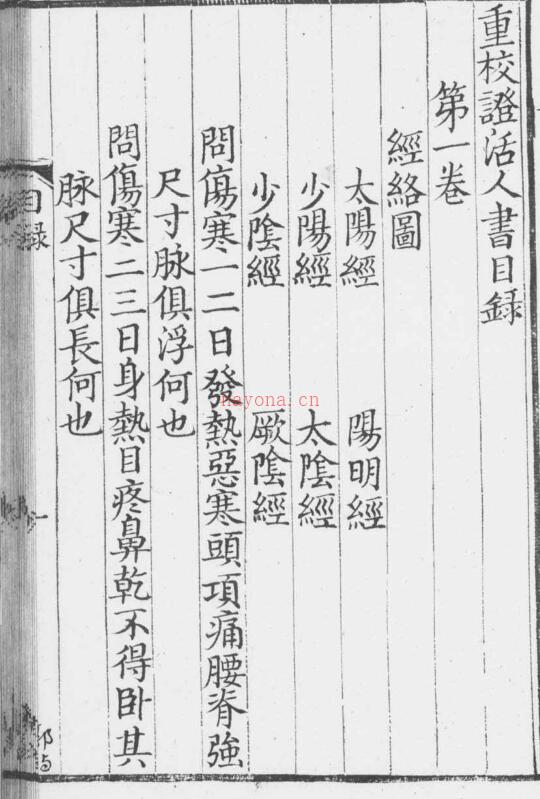 重校證活人書目録
第一卷
經絡圖
太陽經 陽明經
少陽經 太陰經
少陰經 厥陰經
問傷寒一二日發熱惡寒頭項痛腰脊強
尺寸脉俱浮何也
問傷寒二三日身熱目疼鼻乾不得卧其
脉尺寸俱長何也
目録
一
nayona.cn